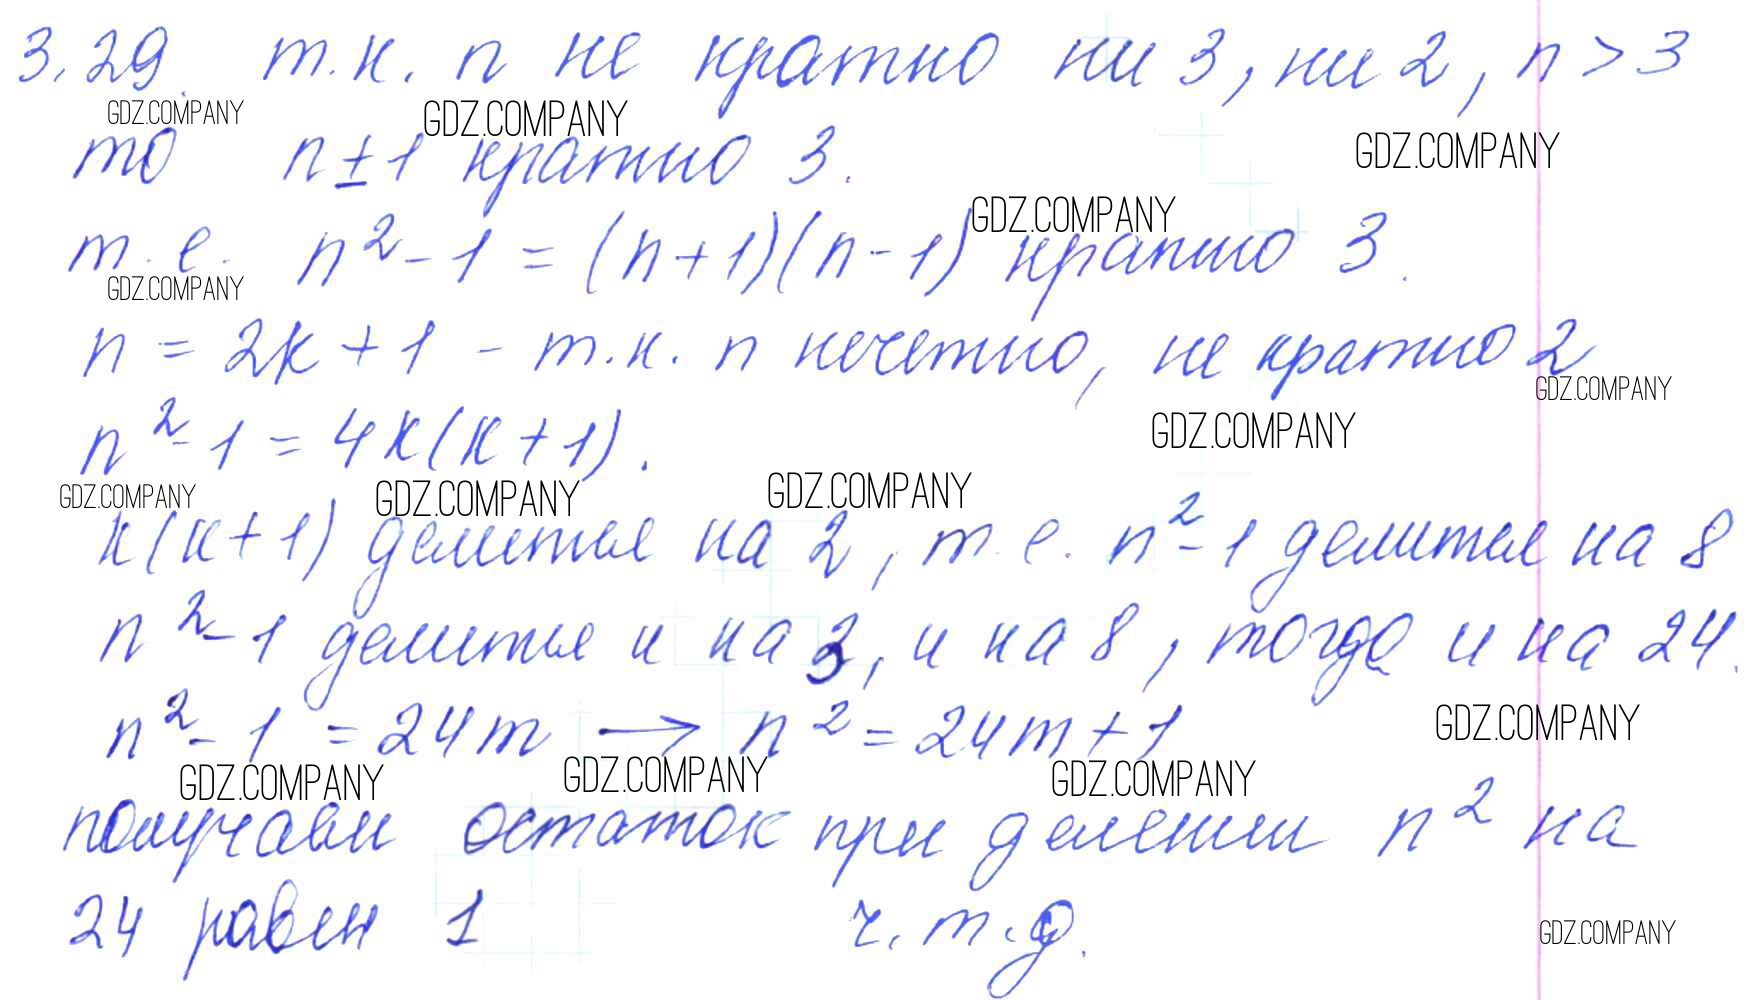 3.29. т.к. n не кратно ни 3, ни 2, n > 3
GDZ.COMPANY GDZ.COMPANY
то n ± 1 кратно 3. GDZ.COMPANY
GDZ.COMPANY
т.е. n² - 1 = (n+1)(n-1) кратно 3.
GDZ.COMPANY
n = 2k + 1 - т.к. n нечетно, не кратно 2
GDZ.COMPANY
n² - 1 = 4k(k+1). GDZ.COMPANY
GDZ.COMPANY GDZ.COMPANY GDZ.COMPANY
k(k+1) делится на 2, т.е. n² - 1 делится на 8
n² - 1 делится и на 3, и на 8, тогда и на 24.
n² - 1 = 24m → n² = 24m + 1 GDZ.COMPANY
GDZ.COMPANY GDZ.COMPANY GDZ.COMPANY
получаем остаток при делении n² на
24 равен 1 ч.т.д. GDZ.COMPANY